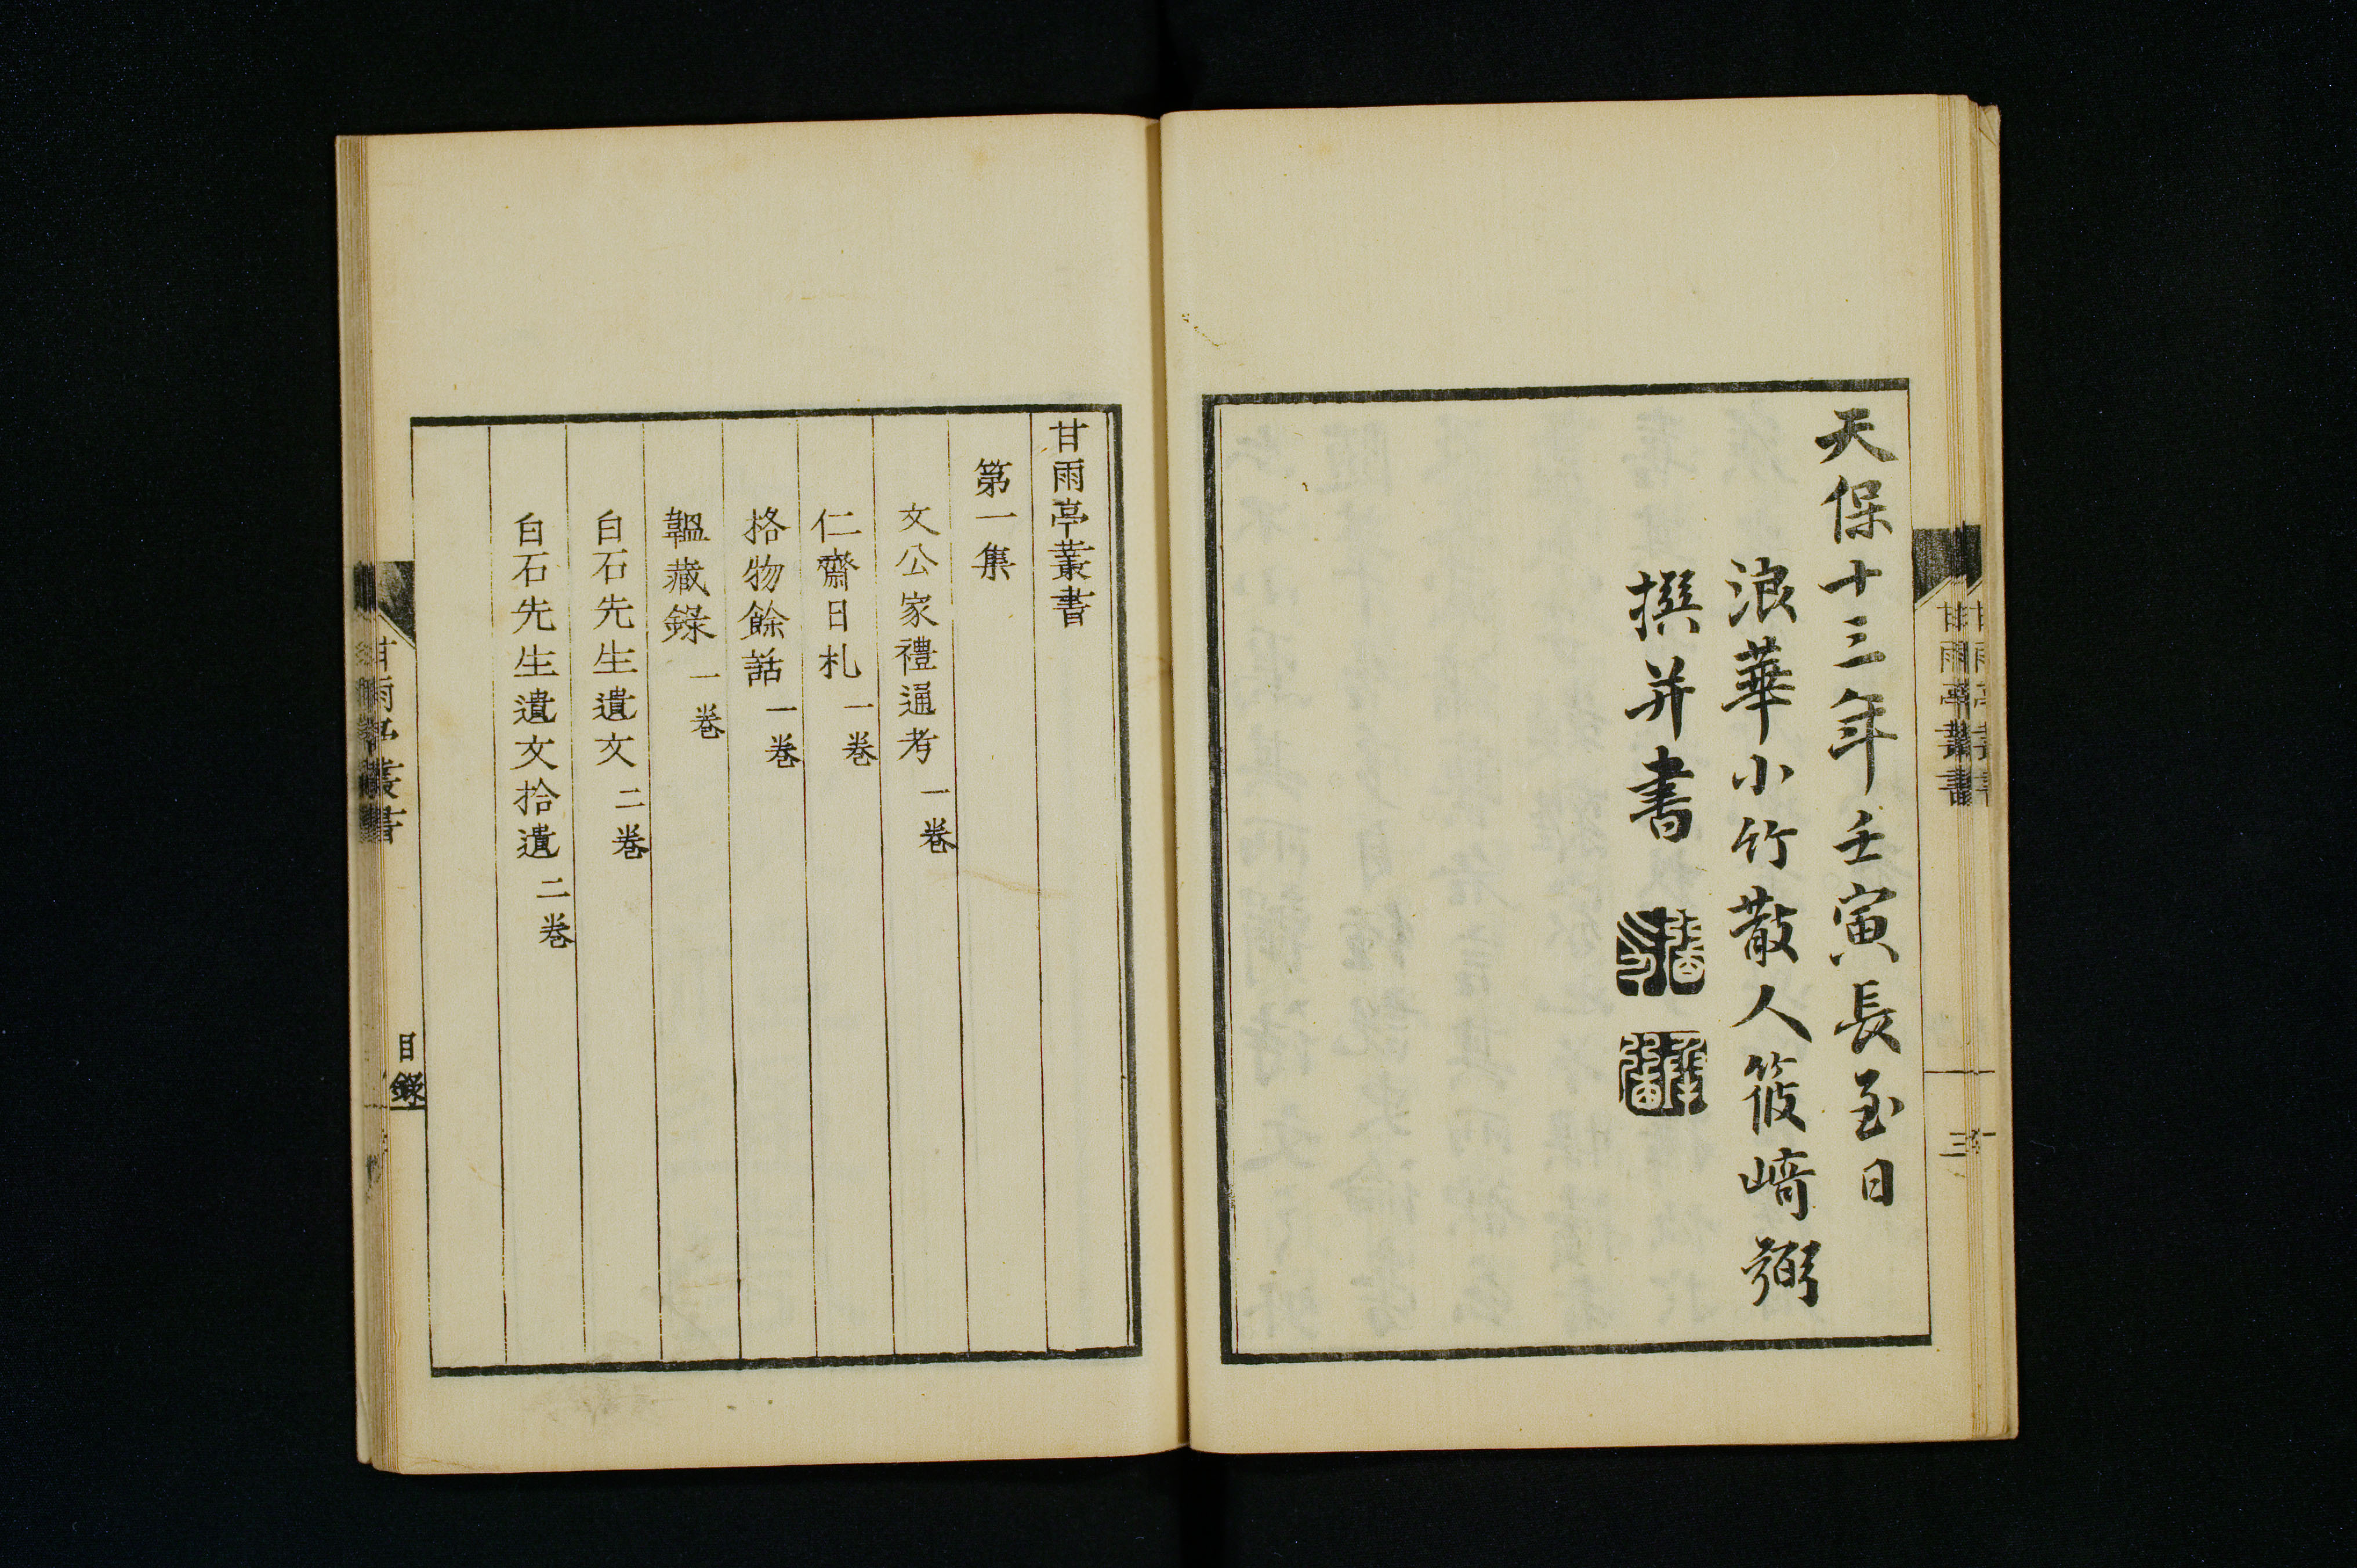 天保十三年壬寅長至日
浪華小竹散人篠﨑弼
撰并書
甘雨亭叢書
三
甘雨亭叢書
第一集
文公家禮通考 一卷
仁齋日札 一卷
格物餘話 一卷
韞藏錄 一卷
白石先生遺文 二卷
白石先生遺文拾遺 二卷
甘雨亭叢書
目錄